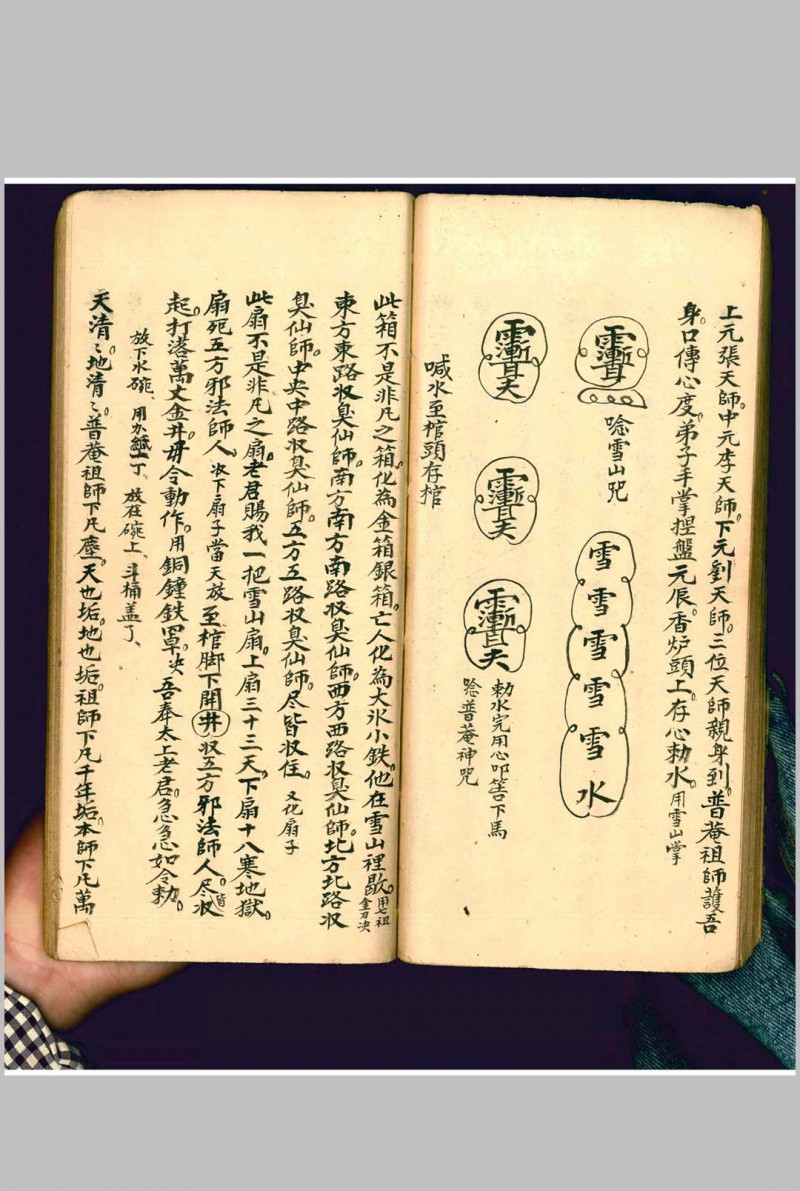 上元張天師。中元李天師。下元劉天師。三位天師親身到。普菴祖師護吾
身。口傳心度。弟子手掌捏盤元辰。香炉頭上。存心勅水。用雪山掌
唸雪山咒
雪雪雪雪雪水
勅水完用心叩筶下馬
唸普菴神咒
喊水至棺頭存棺
此箱不是非凡之箱。化為金箱銀箱。亡人化為大氷小鉄。他在雪山裡歇。用七祖金刀决
東方東路収臭仙師。南方南路収臭仙師。西方西路収臭仙師。北方北路収
臭仙師。中央中路収臭仙師。五方五路収臭仙師。尽皆収住。又化扇子
此扇不是非凡之扇。老君賜我一把雪山扇。上扇三十三天。下扇十八寒地獄。
扇死五方邪法師人。次下扇子當天放至棺脚下開井収五方邪法師人。尽皆収
起。打落萬丈金井。毋令動作。用銅鐘鉄罩决。吾奉太上老君。急急如令勅。
放下水碗、用火紙一丁、放在碗上、斗桶盖了、
天清〻。地清〻。普菴祖師下凡塵。天也垢。地也垢。祖師下凡千年垢。本師下凡萬